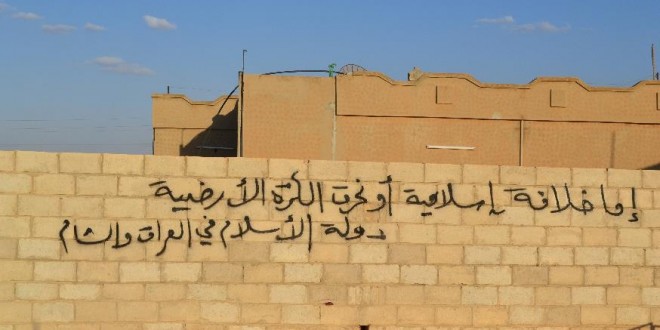 إما خلافة إسلامية أو نحرق الكرة الأرضية
دولة الأسلام في العراق والشام